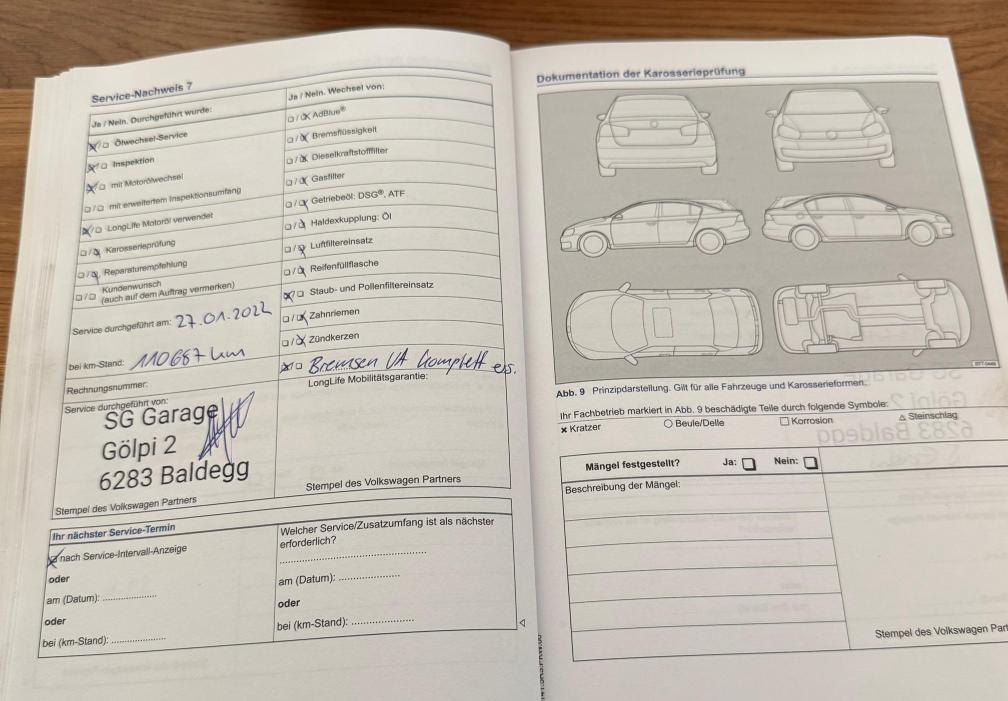 Service-Nachweis 7
Ja / Nein. Durchgeführt wurde:
Ölwechsel-Service
Inspektion
mit Motorölwechsel
mit erweitertem Inspektionsumfang
LongLife Motoröl verwendet
Karosserieprüfung
Reparaturempfehlung
Kundenwunsch
(auch auf dem Auftrag vermerken)
Service durchgeführt am: 27.01.2022
bei km-Stand: 110687 km
Rechnungsnummer:
Service durchgeführt von:
SG Garage
Gölpi 2
6283 Baldegg
Stempel des Volkswagen Partners
Ja / Nein. Wechsel von:
AdBlue®
Bremsflüssigkeit
Dieselkraftstofffilter
Gasfilter
Getriebeöl: DSG®, ATF
Haldexkupplung: Öl
Luftfiltereinsatz
Reifenfüllflasche
Staub- und Pollenfiltereinsatz
Zahnriemen
Zündkerzen
Bremsen VA komplett ers.
LongLife Mobilitätsgarantie:
Stempel des Volkswagen Partners
Ihr nächster Service-Termin
nach Service-Intervall-Anzeige
oder
am (Datum): ................
oder
bei (km-Stand): ................
Welcher Service/Zusatzumfang ist als nächster
erforderlich?
am (Datum): ................
oder
bei (km-Stand): ................
Dokumentation der Karosserieprüfung
Abb. 9 Prinzipdarstellung. Gilt für alle Fahrzeuge und Karosserieformen.
Ihr Fachbetrieb markiert in Abb. 9 beschädigte Teile durch folgende Symbole:
× Kratzer ○ Beule/Delle □ Korrosion △ Steinschlag
Mängel festgestellt? Ja: Nein:
Beschreibung der Mängel:
Stempel des Volkswagen Part